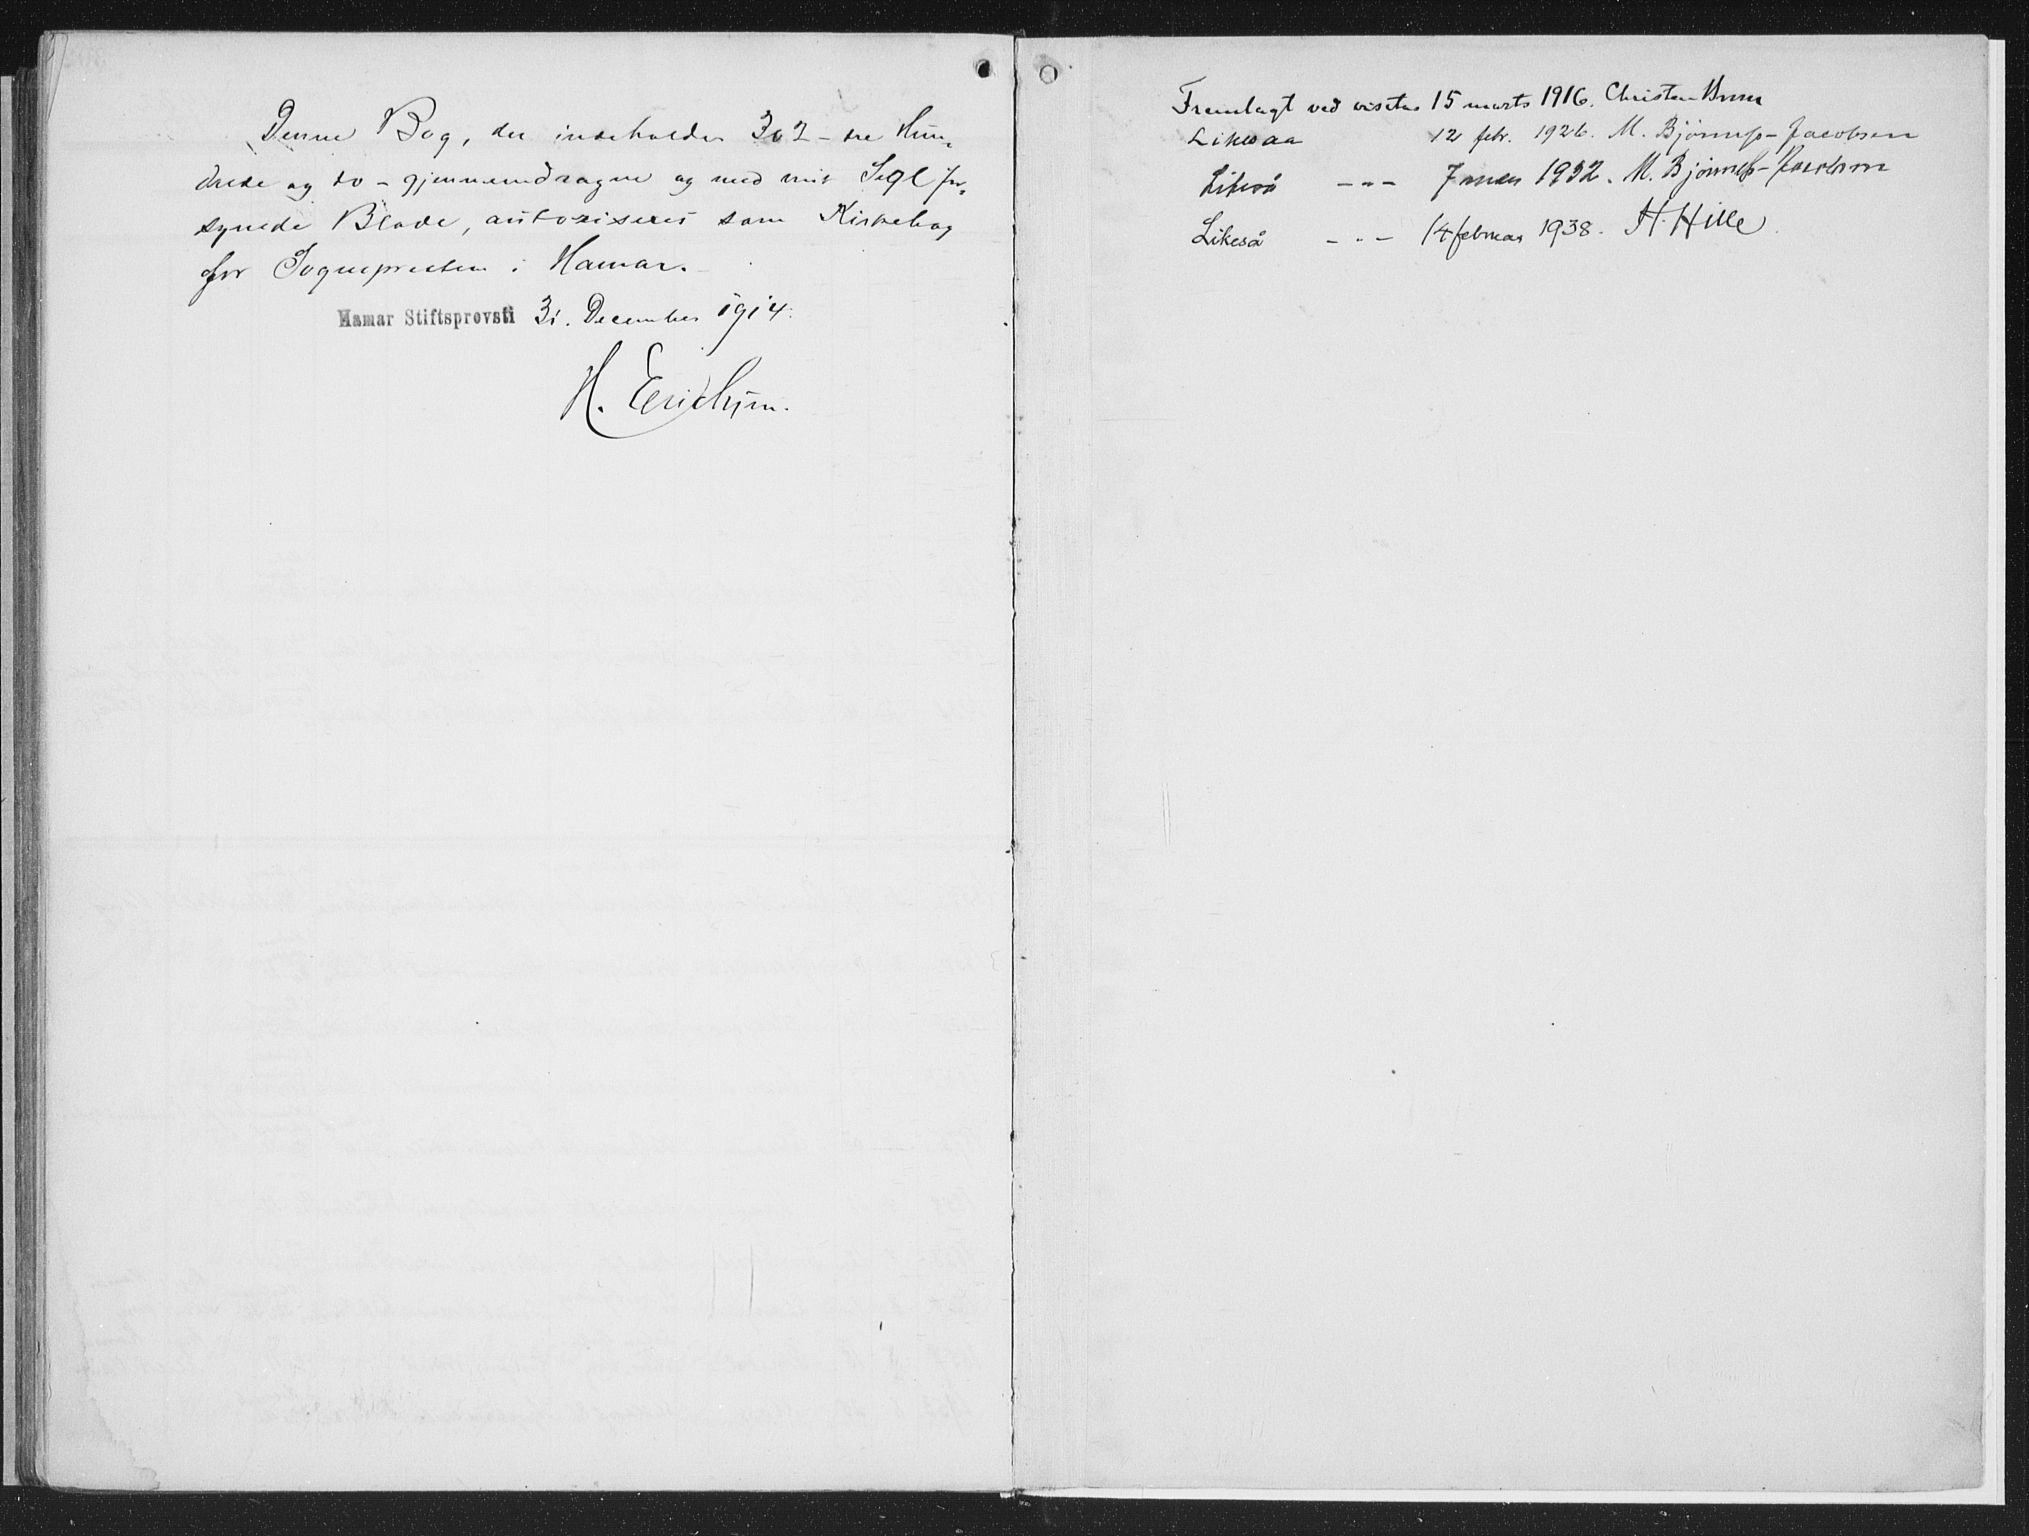 Denne Bog, der indeholder 302 – tre Hun-
drede og to – gjennemdragne og med mit Segl for-
synede Blade, autoriseres som Kirkebog
for Sognepresten i Hamar.
Hamar Stiftsprovsti 31. December 1914.
H. Erichsen.
Fremlagt ved visitas 15 marts 1916. Christen Brun
Likesaa 12 febr. 1926. M. Bjønnes-Jacobsen
Likeså - - - 7 mars 1932. M. Bjønnes-Jacobsen
Likeså - - - 14 februar 1938. H. Hille